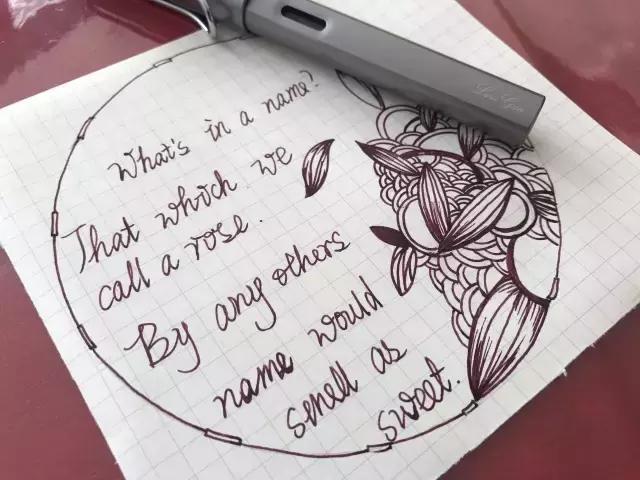 What's in a name?
That which we
call a rose.
By any others
name would
smell as
sweet.